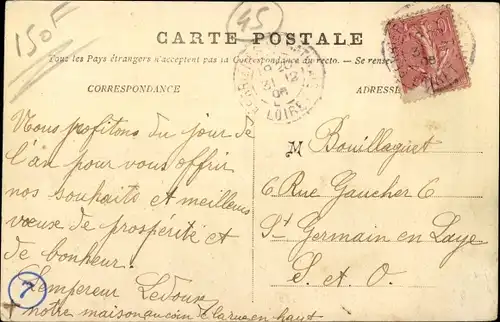 150F
45
CARTE POSTALE
Tous les Pays étrangers n'acceptent pas la Correspondance du recto. — Se rensei
CORRESPONDANCE
ADRESSE
31 12
06
LOIRE
Nous profitons du jour de
l'an pour vous offrir
nos souhaits et meilleurs
vœux de prospérité et
de bonheur.
Lempereur Ledoux
+ notre maison au coin de la rue en haut
M Bouillaguet
6 Rue Gaucher 6
St Germain en Laye
S. et O.
7